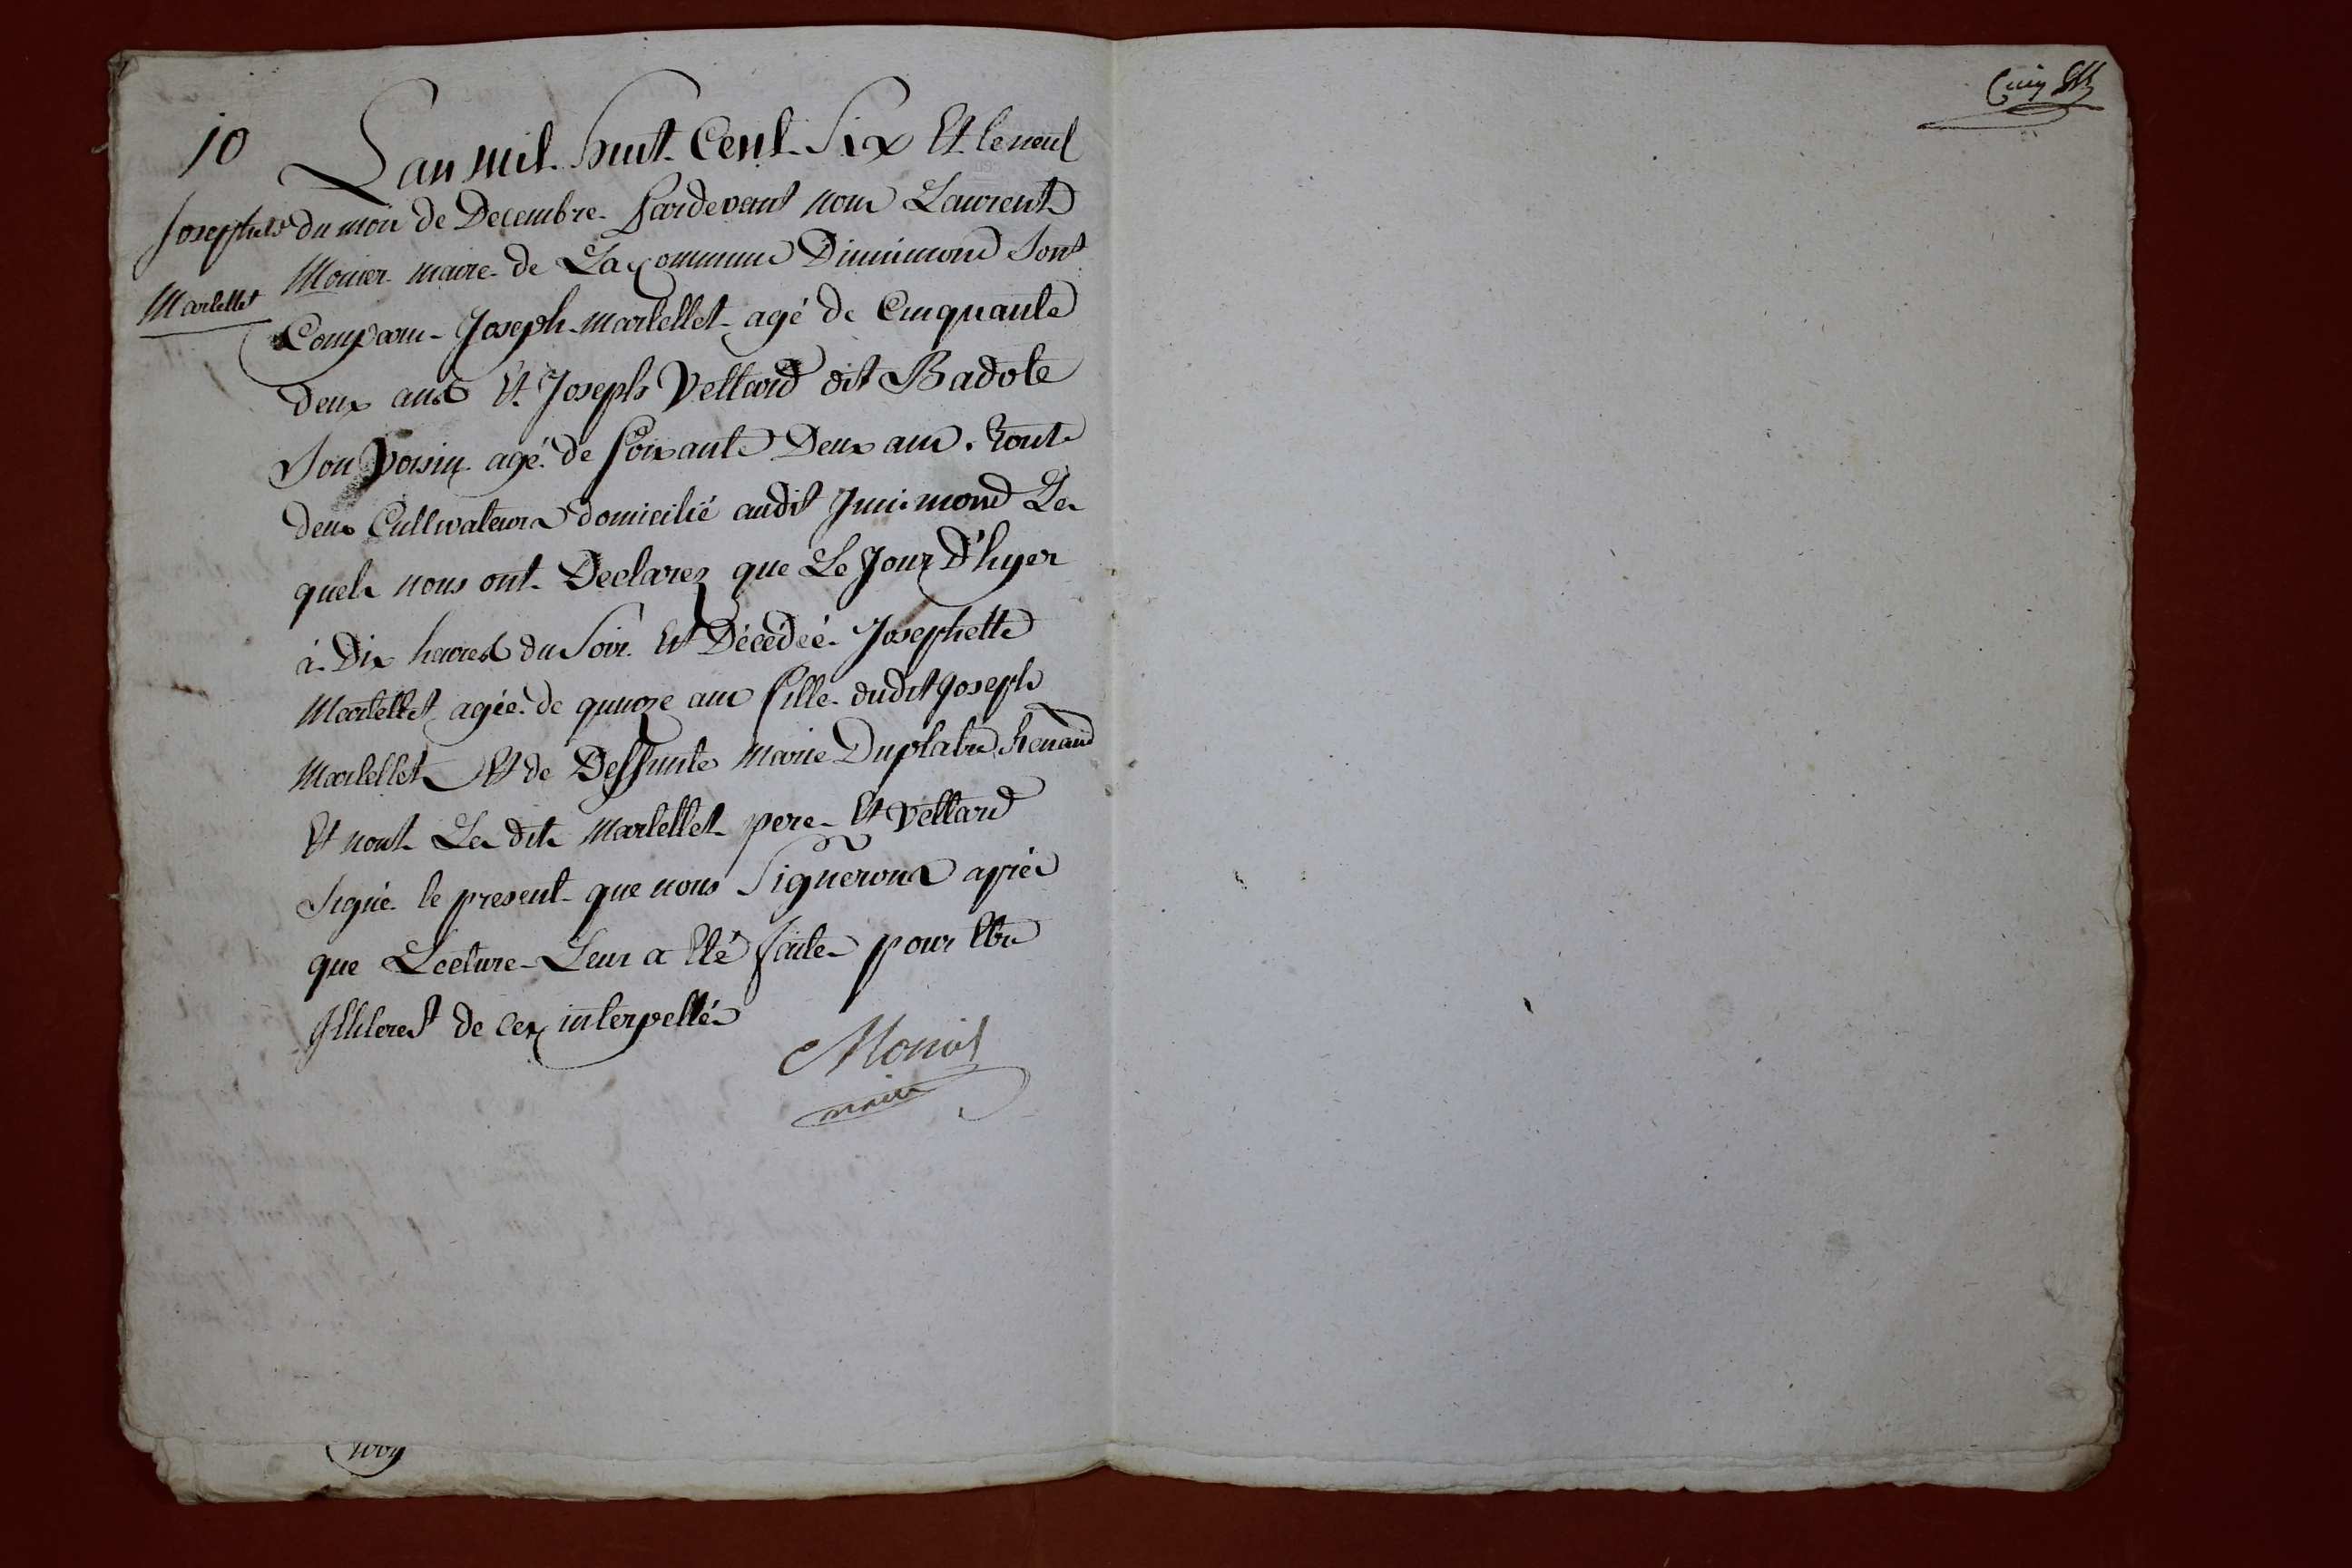 10
Josephte
Martellet
L'an mil huit Cent Six Et le neuf
du mois de Decembre Pardevant nous Laurent
Monier maire de La Commune Dinnimond Sont
Comparus Joseph Martellet agé de Cinquante
deux ans Et Joseph Vettard dit Badote
Son Voisin agé de Soixante Deux ans. Tout
deux Cultivateurs domicilié audit Innimond Les
quels nous ont Declarez que Le Jour D'hyer
à Dix heures du Soir Est Décédeé Josephette
Martellet agée de quinze ans fille dudit Joseph
Martellet Et de Deffunte Marie Duplatre Renaud
Et nont Les dits Martellet pere Et Vettard
Signé le present que nous Signerons après
que Lecture Leur a Eté faite pour Etre
Illiteres de ce interpellés
Monier
maire